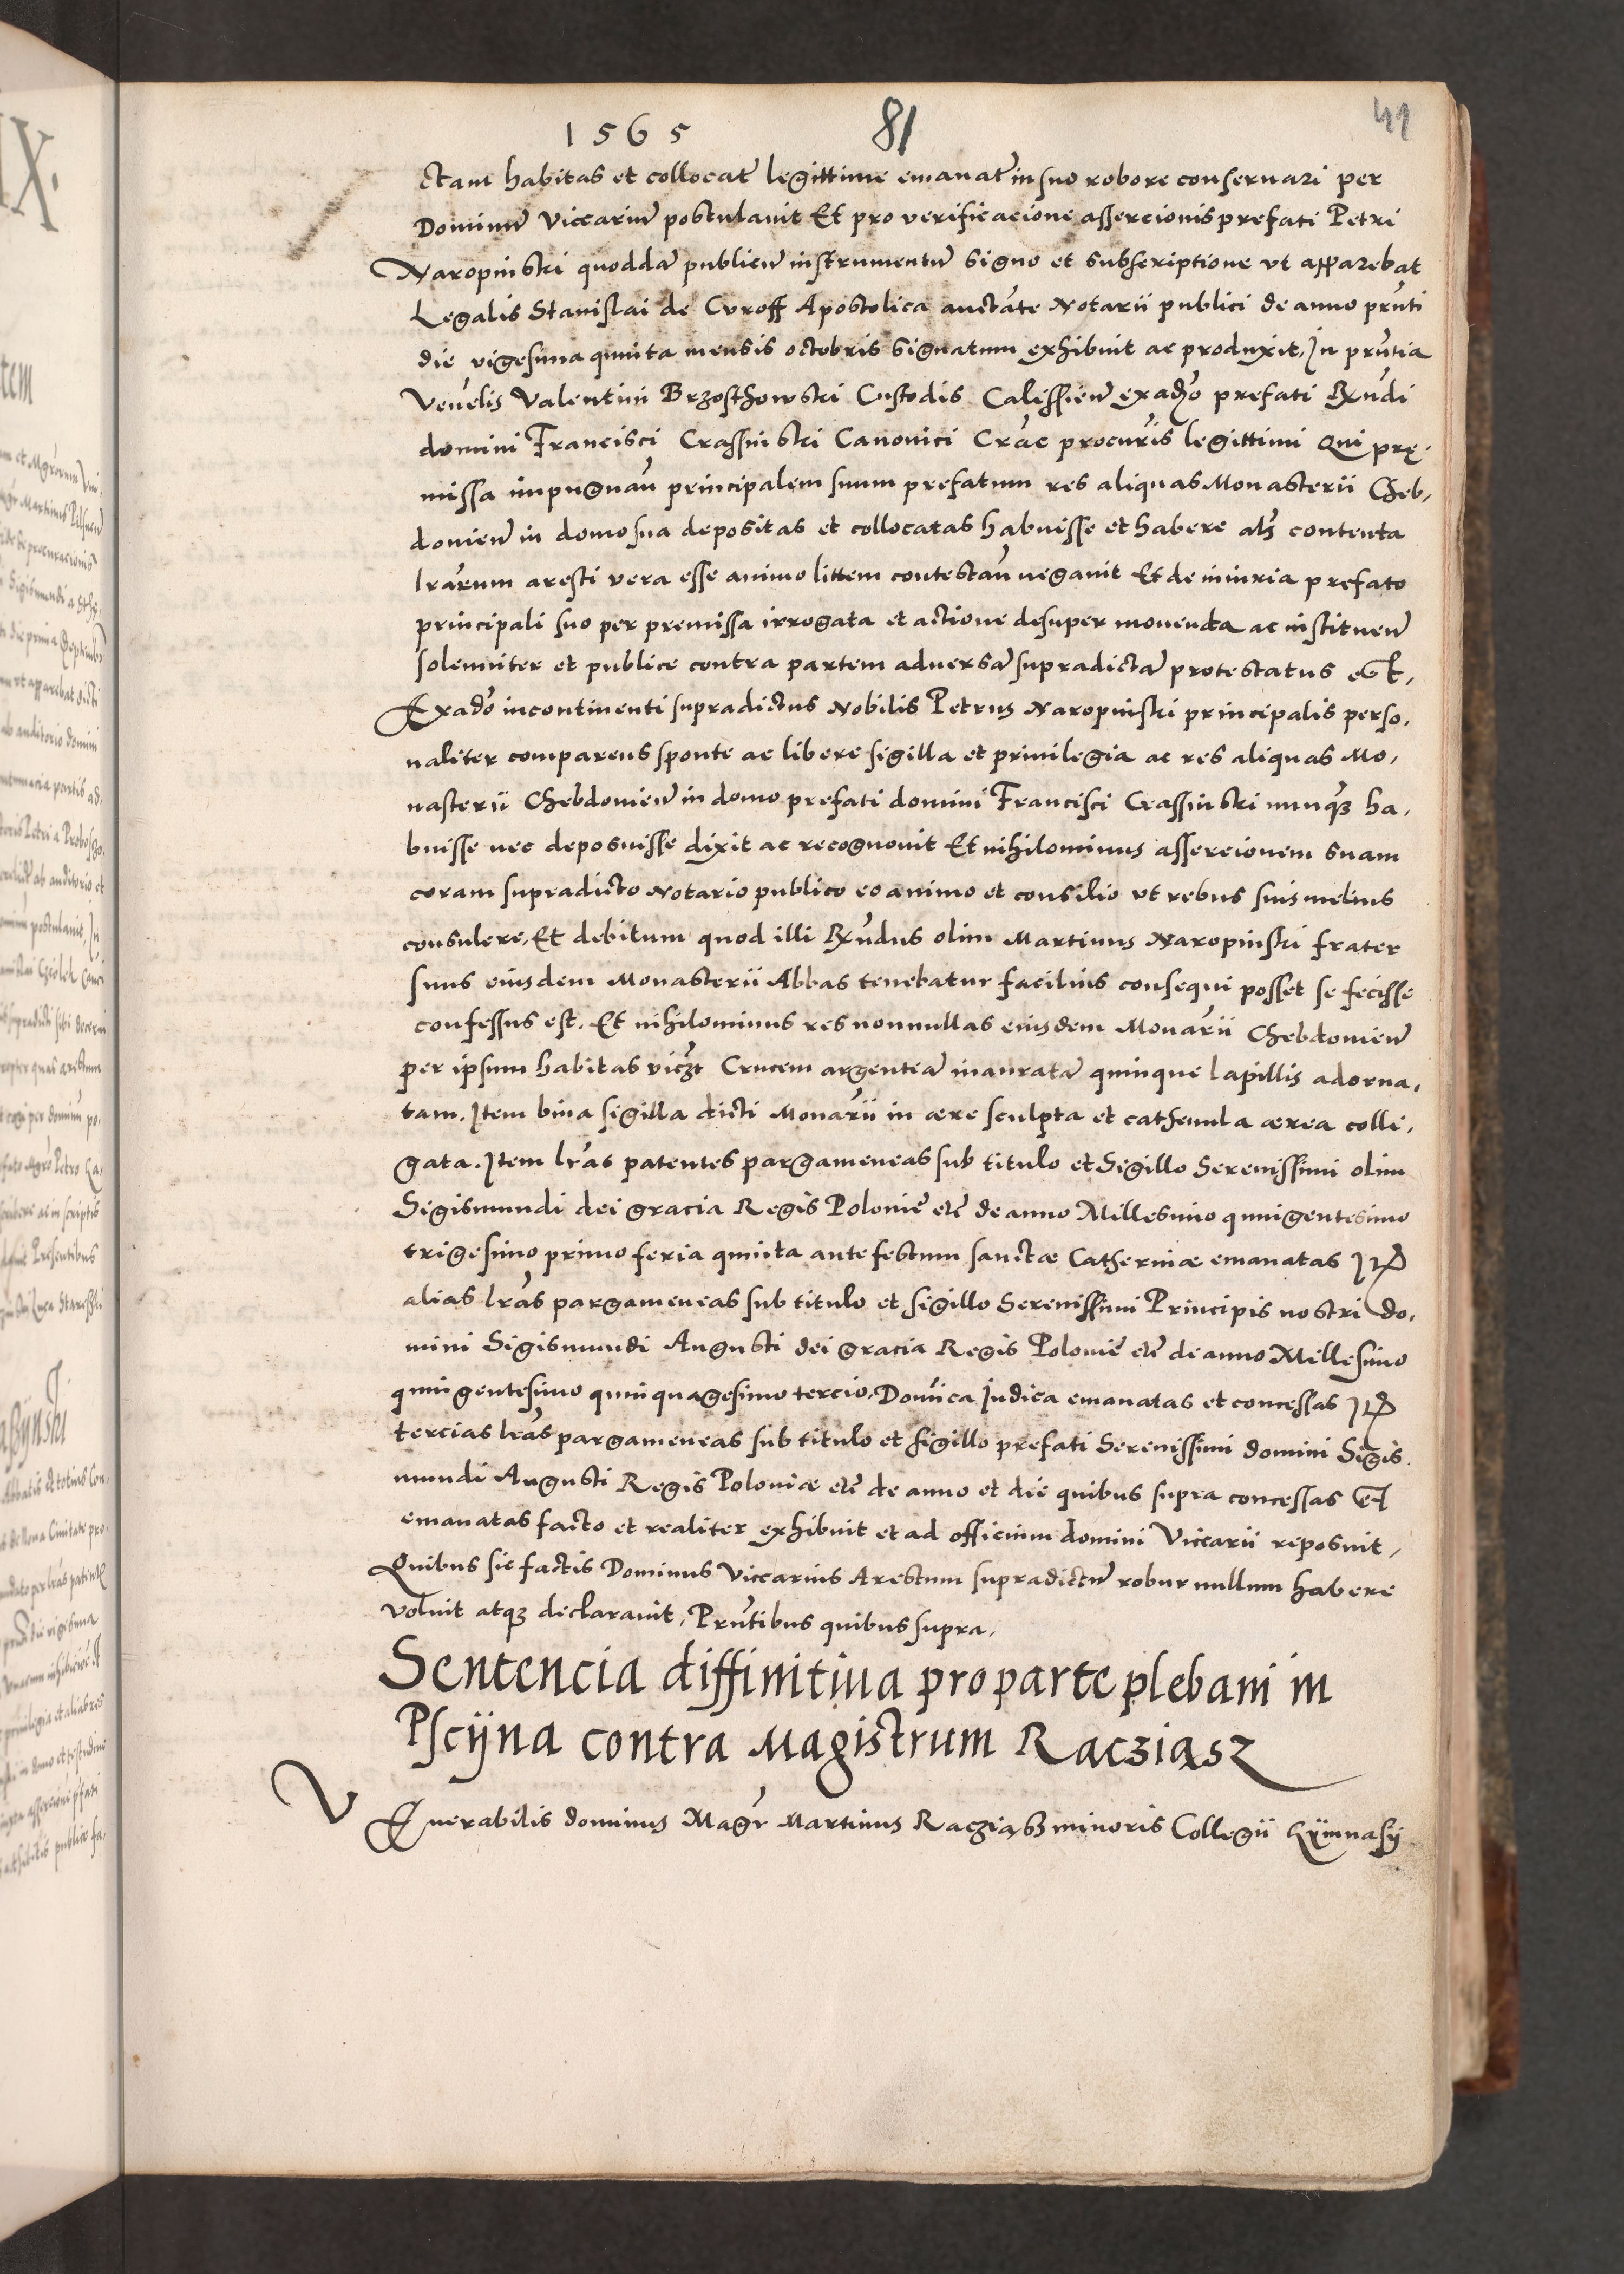 1565 81 41
ctam habitas et collocat̃ legittime emanat̃ in suo robore conseruari per
Dominũ Viccariũ postulauit Et pro verificacione assercionis prefati Petri
Naropinski quoddã publicũ instrumentũ signo et subscriptione vt apparebat
Legalis Stanislai de Curoff Apostolica auctãte Notarii publici de anno prñti
die vigesima quinta mensis octobris signatum exhibuit ac produxit, In prñtia
Veñelis Valentini Brzosthowski Custodis Calissieñ exad̃o prefati Rxñdi
domini Francisci Crassinski Canonici Crac̃ procur̃is legittimi Qui prę,
missa impugnañ principalem suum prefatum res aliquas Monasterii Cheb,
donieñ in domo sua depositas et collocatas habuisse et habere al̃s contenta
lr̃arum aresti vera esse animo littem contestañ negauit Et de iniuria prefato
principali suo per premissa irrogata et actione desuper mouenda ac instituen̄
solenniter et publice contra partem aduersã supradictã protestatus est,
Exad̃o incontinenti supradictus Nobilis Petrus Naropinski principalis perso,
naliter comparens sponte ac libere sigilla et priuilegia ac res aliquas Mo,
nasterii Chebdonieñ in domo prefati domini Francisci Crassinski nunq̃ ha,
buisse nec deposuisse dixit ac recognouit Et nihilominus assercionem suam
coram supradicto Notario publico eo animo et consilio vt rebus suis melius
consulere, Et debitum quod illi Rxñdus olim Martinus Naropinski frater
suus eiusdem Monasterii Abbas tenebatur facilius consequi posset se fecisse
confessus est. Et nihilominus res nonnullas eiusdem Monãrii Chebdonieñ
per ipsum habitas viczt Crucem argenteã inauratã quinque lapillis adorna,
tam. Item bina sigilla dicti Monãrii in aere sculpta et cathenula aerea colli,
gata. Item lr̃as patentes pargameneas sub titulo et Sigillo Serenissimi olim
Sigismundi dei gracia Regis Poloniẽ etc̃ de anno Millesimo quingentesimo
trigesimo primo feria quinta ante festum sanctae Catherinae emanatas It̃
alias lr̃as pargameneas sub titulo et sigillo Serenissimi Principis nostri do,
mini Sigismundi Augusti dei gracia Regis Poloniẽ etc̃ de anno Millesimo
quingentesimo quinquagesimo tercio, Domĩca Iudica emanatas et concessas It̃
tercias lr̃as pargameneas sub titulo et sigillo prefati Serenissimi domini Sigis
mundi Augusti Regis Poloniae etc̃ de anno et die quibus supra concessas et
emanatas facto et realiter exhibuit et ad officium domini Viccarii reposuit,
Quibus sic factis Dominus Viccarius Arestum supradictũ robur nullum habere
voluit atqʒ declarauit, Prñtibus quibus supra,
Sentencia diffinitiua pro parte plebani in
Pscijna contra Magistrum Racziąsz
VEnerabilis dominus Magr̃ Martinus Racziąsz minoris Collegii Gÿmnasij